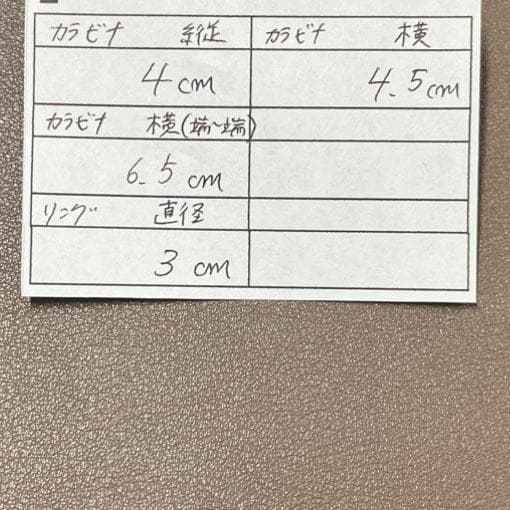 カラビナ 縦 カラビナ 横
4cm 4.5cm
カラビナ 横(端~端)
6.5cm
リング 直径
3cm